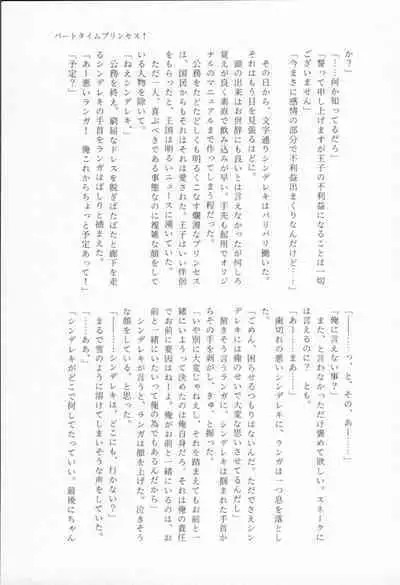 パートタイムプリンセス！
か？」
「……何か知ってるだろ」
「誓って申し上げますが王子の不利益になることは一切
ございません」
「今まさに感情の部分で不利益出まくりなんだけど…！」
その日から、文字通りシンデレキはバリバリ働いた。
それはもう目を見張るほどに。
頭の出来はお世辞にも良いとは言えなかったが何しろ
覚えが良く素直で飲み込みが早い。手先も起用でオリジ
ナルのマニュアルまで作ってしまう程だった。
公務をたどたどしくも明るくこなす爛漫なプリンセス
は、国民からもそれはそれは愛された。王子はいい伴侶
をもらったと、王国は明るいニュースに湧いていた。
ただ一人、喜ぶべきである事態なのに複雑な顔をして
いる人物を除いて。
「ねえシンデレキ、」
公務を終え、窮屈なドレスを脱ぎぱたぱたと廊下を走
るシンデレキの手首をランガはぱしりと捕まえた。
「あー悪いランガ！　俺これからちょっと予定あって！」
「予定？」
「―――っ、と、その、あー……」
「俺に言えない事？」
また、と言わなかっただけ褒めて欲しい。スネークに
は言えるのに？　とも。
「あー……まあ……」
歯切れの悪いシンデレキに、ランガは一つ息を落とし
た。
「ごめん、困らせるつもりはないんだ。ただでさえシン
デレキには俺のせいで大変な思いさせてるんだし」
俯きそう言うランガに、シンデレキは掴まれた手首か
らその手を剥がし、きゅ、と握った。
「いや別に大変じゃねえし、それを踏まえてもお前と一
緒にいようって決めたのは俺自身だろ。それは俺の責任
でお前に要因はねーよ。俺がお前と一緒にいるのは、お
前と一緒にいたいって俺の為でもあるんだから」
シンデレキが言うと、ランガは顔を上げた。泣きそう
な顔をしている、と思った。
「―――シンデレキは、どこにも、行かない？」
まるで雪のように溶けてしまいそうな声をしていた。
「……ああ。」
「シンデレキがどこで何してたっていい。最後にちゃん